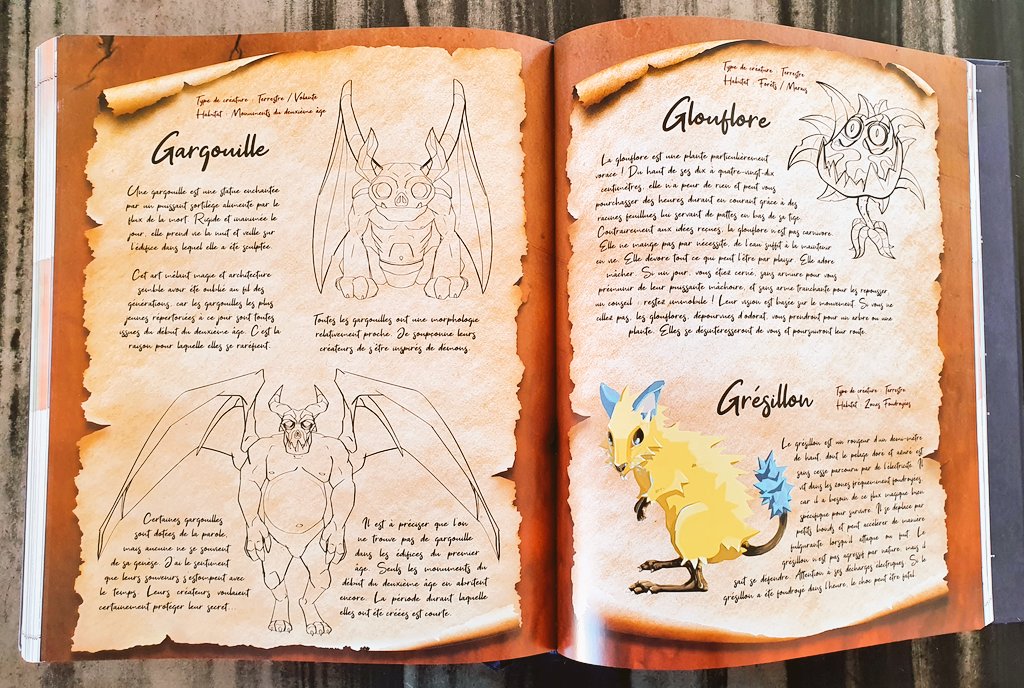 Type de créature : Terrestre / Volante
Habitat : Monuments du deuxième âge
Gargouille
Une gargouille est une statue enchantée
par un puissant sortilège alimenté par le
flux de la mort. Rigide et inanimée le
jour, elle prend vie la nuit et veille sur
l'édifice dans lequel elle a été sculptée.
Cet art mêlant magie et architecture
semble avoir été oublié au fil des
générations, car les gargouilles les plus
jeunes répertoriées à ce jour sont toutes
issues du début du deuxième âge. C'est la
raison pour laquelle elles se raréfient.
Toutes les gargouilles ont une morphologie
relativement proche. Je soupçonne leurs
créateurs de s'être inspirés de démons.
Certaines gargouilles
sont dotées de la parole,
mais aucune ne se souvient
de sa genèse. J'ai le sentiment
que leurs souvenirs s'estompent avec
le temps. Leurs créateurs voulaient
certainement protéger leur secret...
Il est à préciser que l'on
ne trouve pas de gargouille
dans les édifices du premier
âge. Seuls les monuments du
début du deuxième âge en abritent
encore. La période durant laquelle
elles ont été créées est courte.
Type de créature : Terrestre
Habitat : Forêts / Marais
Glouflore
La glouflore est une plante particulièrement
vorace ! Du haut de ses dix à quatre-vingt-dix
centimètres, elle n'a peur de rien et peut vous
pourchasser des heures durant en courant grâce à des
racines feuillues lui servant de pattes en bas de sa tige.
Contrairement aux idées reçues, la glouflore n'est pas carnivore.
Elle ne mange pas par nécessité, de l'eau suffit à la maintenir
en vie. Elle dévore tout ce qui peut l'être par plaisir. Elle adore
mâcher. Si un jour, vous étiez cerné, sans armure pour vous
prémunir de leur puissante mâchoire, et sans arme tranchante pour les repousser,
un conseil : restez immobile ! Leur vision est basée sur le mouvement. Si vous ne
cillez pas, les glouflores, dépourvues d'odorat, vous prendront pour un arbre ou une
plante. Elles se désintéresseront de vous et poursuivront leur route.
Grésillon
Type de créature : Terrestre
Habitat : Zones Foudroyées
Le grésillon est un rongeur d'un demi-mètre
de haut, dont le pelage doré et azuré est
sans cesse parcouru par de l'électricité. Il
vit dans les zones fréquemment foudroyées,
car il a besoin de ce flux magique bien
spécifique pour survivre. Il se déplace par
petits bonds et peut accélérer de manière
fulgurante lorsqu'il attaque ou fuit. Le
grésillon n'est pas agressif par nature, mais il
sait se défendre. Attention à ses décharges électriques. Si le
grésillon a été foudroyé dans l'heure, le choc peut être fatal.